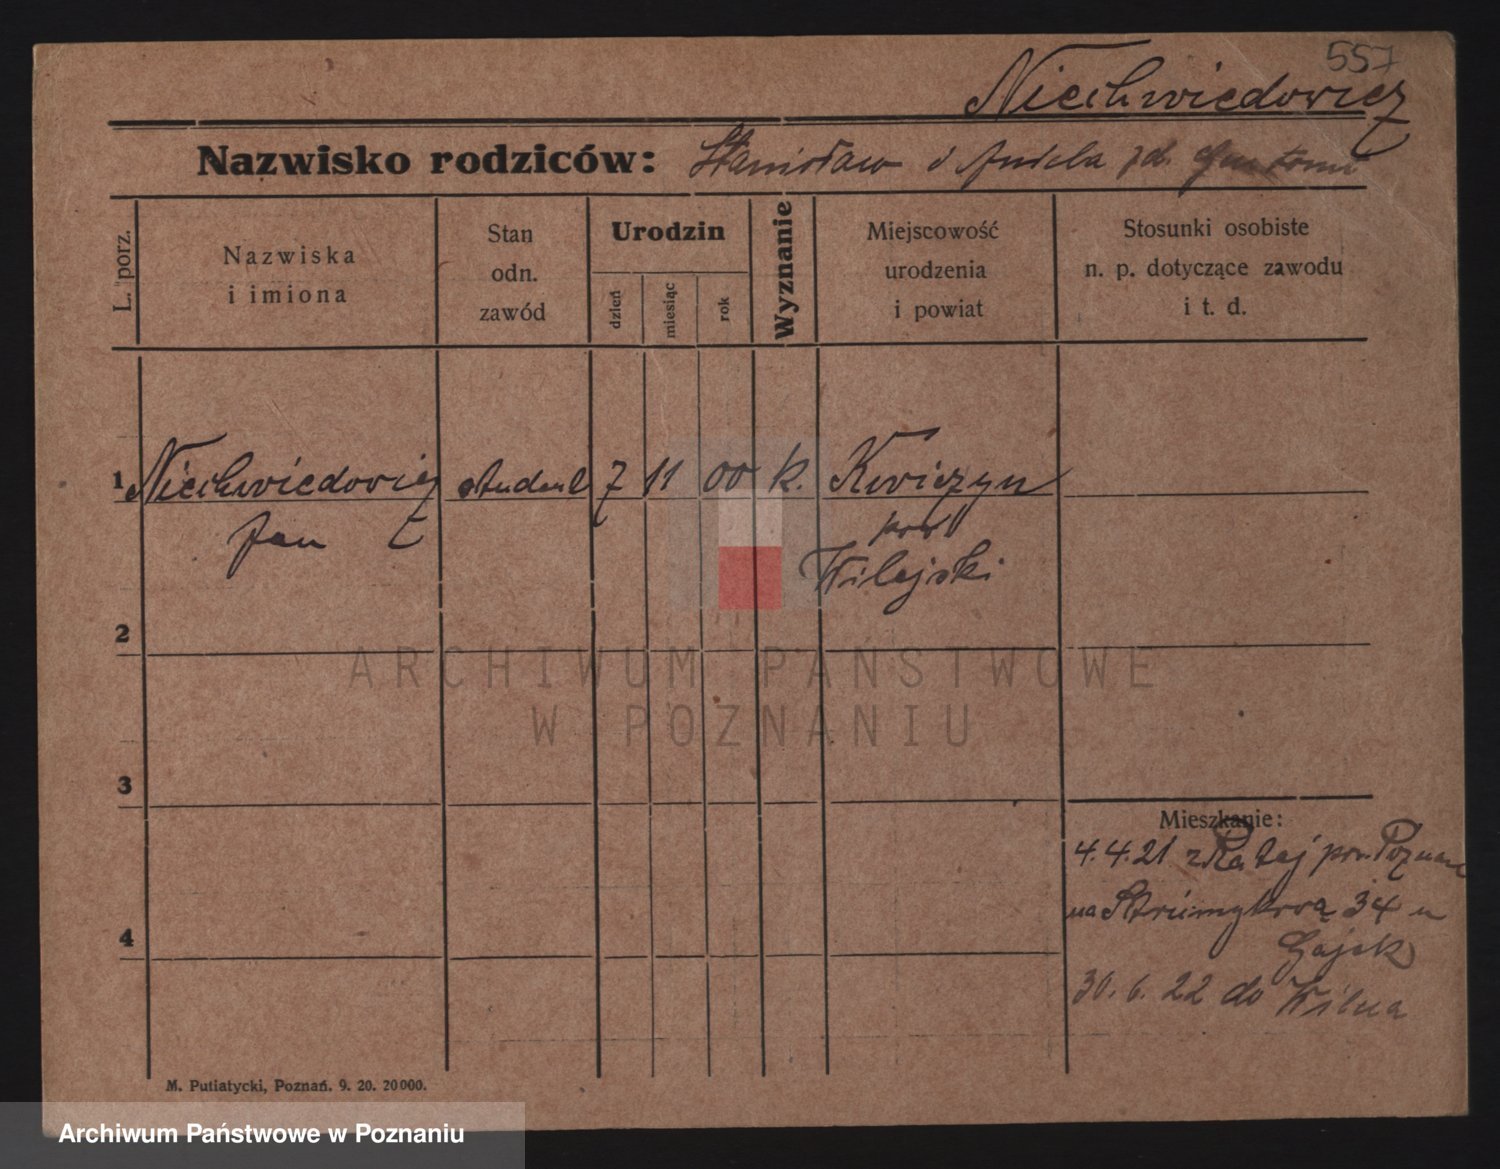 557
Niechwiedowicz
Nazwisko rodziców: Stanisław i Aniela zd.
L. porz.
Nazwiska
i imiona
Stan
odn.
zawód
Urodzin
dzień
miesiąc
rok
Wyznanie
Miejscowość
urodzenia
i powiat
Stosunki osobiste
n. p. dotyczące zawodu
i t. d.
1 Niechwiedowicz student 7 11 00 k. Kwiczyn
Jan pow
Wilejski
2
3
4
Mieszkanie:
4.4.21 z Rataj pow. Poznań
na Strumykową 34 u
Gajek
30.6.22 do Wilna
ARCHIWUM PAŃSTWOWE
W POZNANIU
M. Putiatycki, Poznań. 9. 20. 20000.
Archiwum Państwowe w Poznaniu